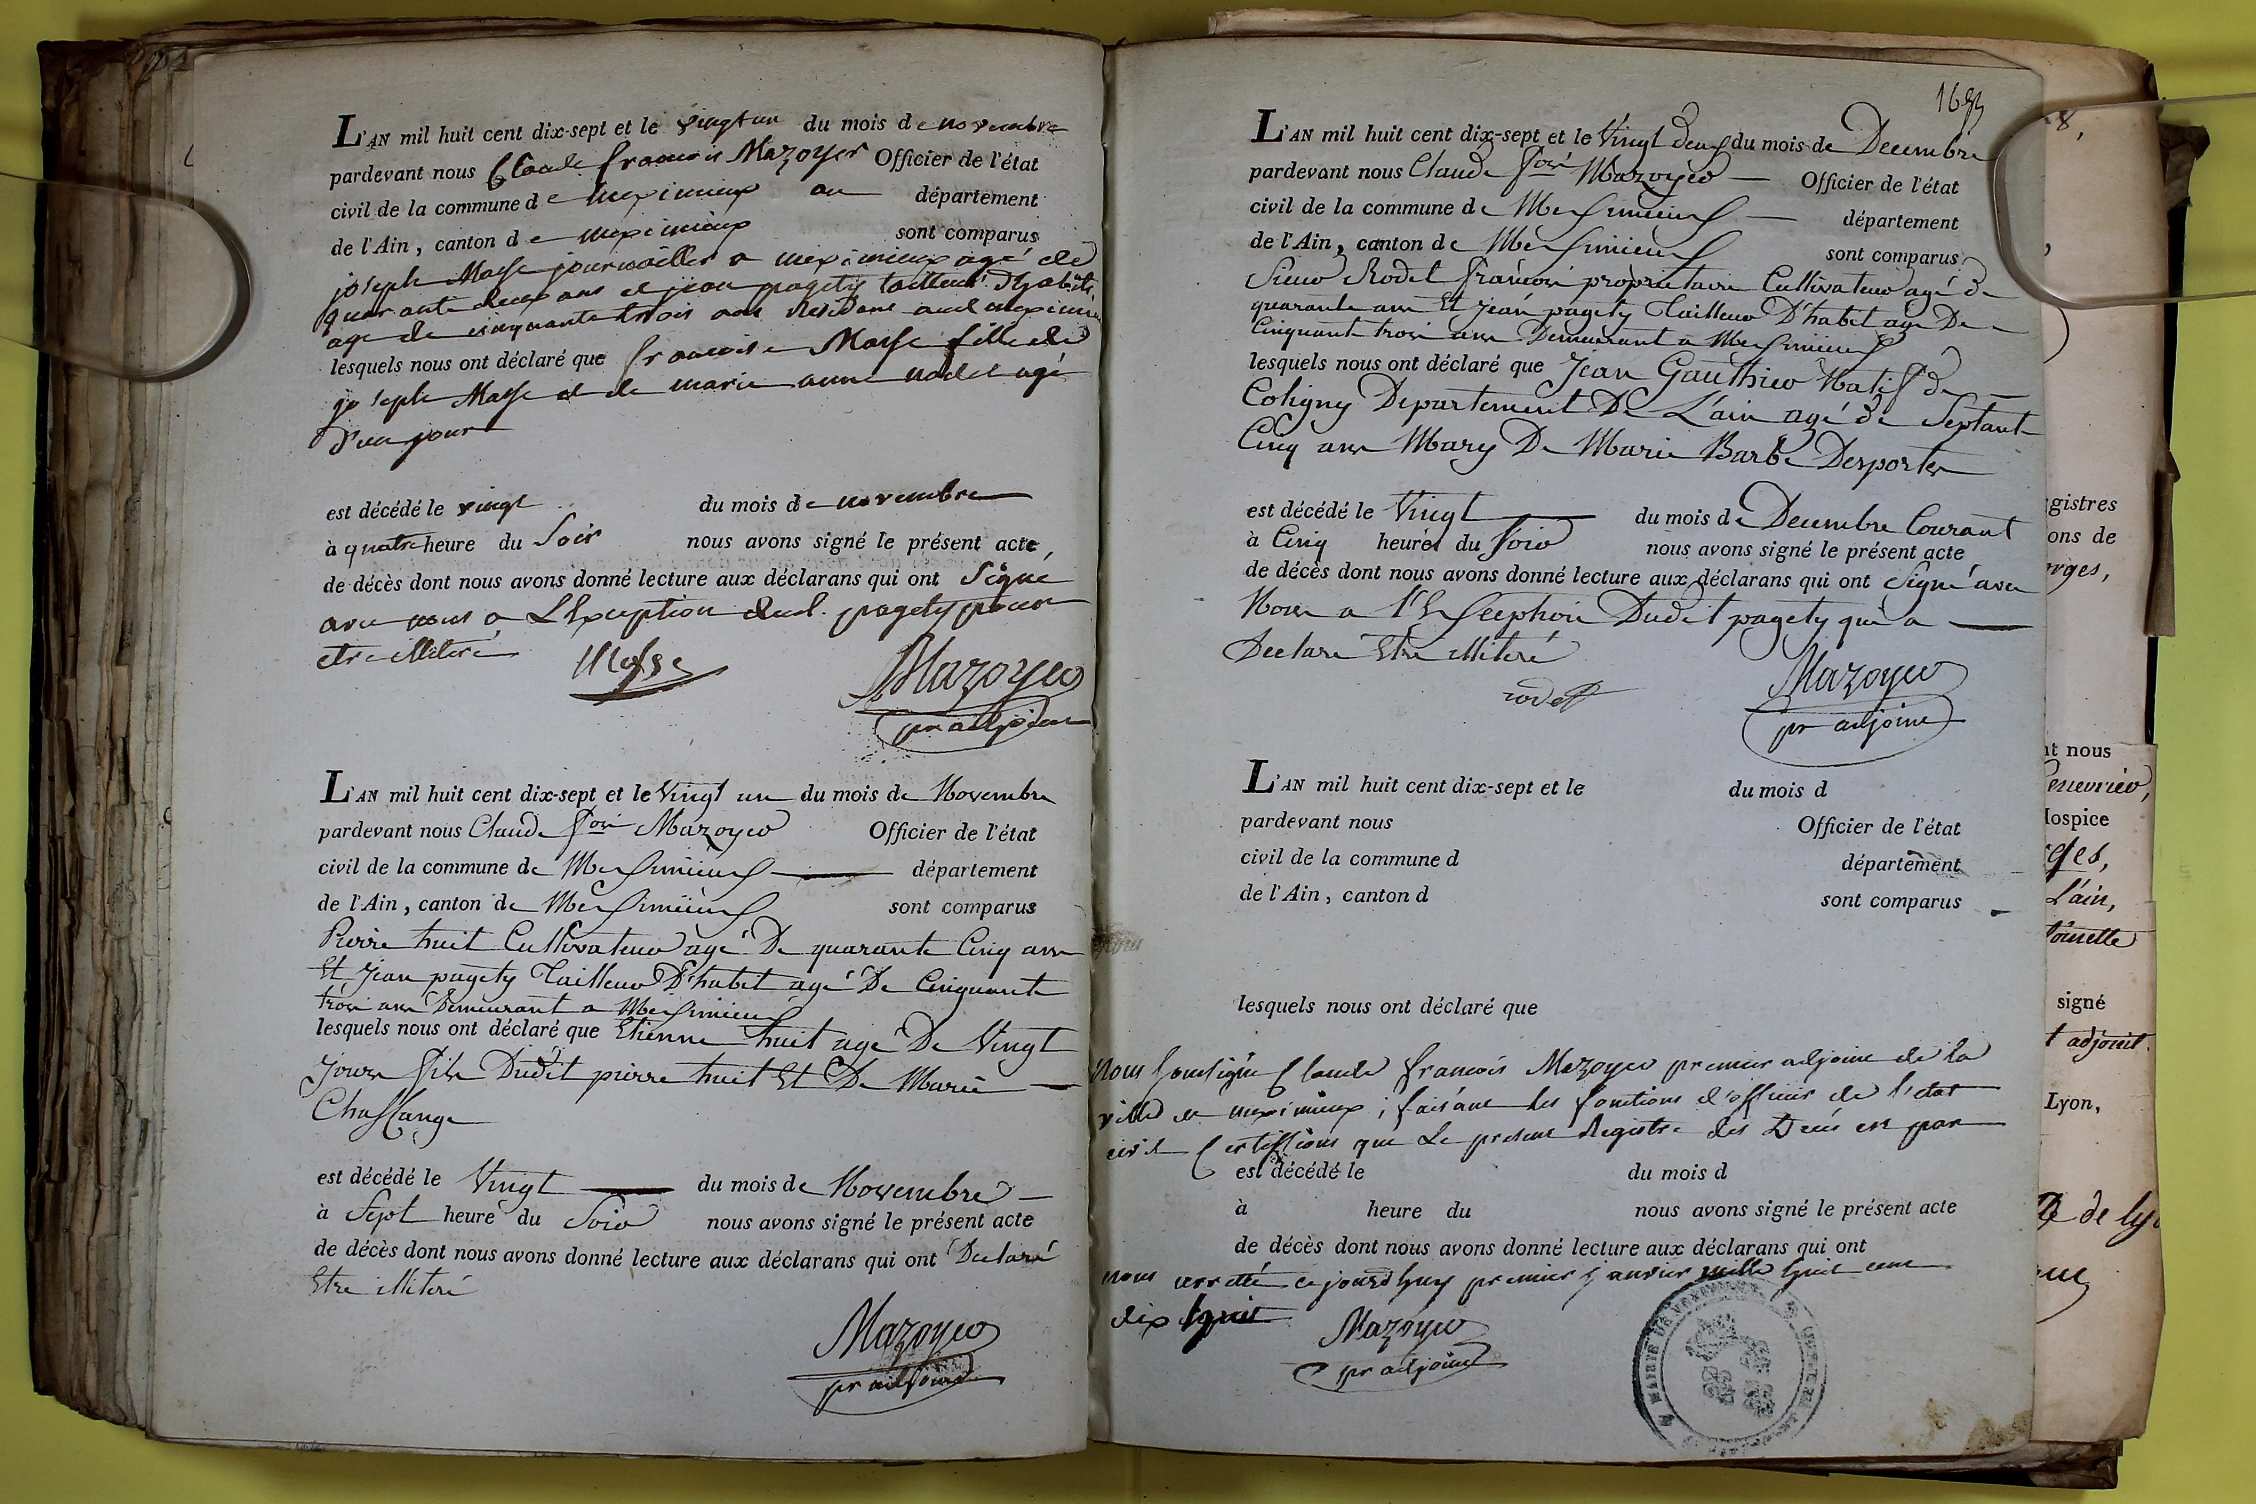 L'AN mil huit cent dix-sept et le vingt un du mois de novembre
pardevant nous Claude francois Mazoyer Officier de l'état
civil de la commune de meximieux au département
de l'Ain, canton de meximieux sont comparus
joseph Masse journailler a meximieux agé de
quarante deux ans et jean pagety tailleur d'habits
age de cinquante trois ans
lesquels nous ont déclaré que francoise Masse fille de
joseph Masse et de marie anne agé
d'un jour
est décédé le vingt du mois de novembre
à quatre heure du Soir nous avons signé le présent acte
de décès dont nous avons donné lecture aux déclarans qui ont Signé
avec nous a L'Exception dud. pagety pour
etre illiteré
Masse
Mazoyer
pr adjoint
L'AN mil huit cent dix-sept et le Vingt un du mois de Novembre
pardevant nous Claude fois Mazoyer Officier de l'état
civil de la commune de Mersimieux département
de l'Ain, canton de Mersimieux sont comparus
Pierre huit Cultivateur agé De quarante Cinq ans
Et jean pagety Tailleur D'habit agé De Cinquante
trois ans Demeurant a Mersimieux
lesquels nous ont déclaré que Etienne huit agé De Vingt
jours fils Dudit pierre huit Et De Marie
est décédé le Vingt du mois de Novembre
à Sept heure du Soir nous avons signé le présent acte
de décès dont nous avons donné lecture aux déclarans qui ont Declaré
Etre illiteré
Mazoyer
pr adjoint
L'AN mil huit cent dix-sept et le Vingt deux du mois de Decembre
pardevant nous Claude fois Mazoyer Officier de l'état
civil de la commune de Mersimieux département
de l'Ain, canton de Mersimieux sont comparus
Sieur Rodet francois propriétaire Cultivateur agé de
quarante ans Et jean pagety Tailleur D'habit age De
Cinquante trois ans Demeurant a Mersimieux
lesquels nous ont déclaré que Jean Gauthier Natif de
Coligny Departement De L'ain agé de Septante
Cinq ans Mary De Marie Barbe Desportes
est décédé le Vingt du mois de Decembre Courant
à Cinq heures du Soir nous avons signé le présent acte
de décès dont nous avons donné lecture aux déclarans qui ont Signé avec
Nous a Dudit pagety qui a
Declaré Etre illiteré
rodet
Mazoyer
pr adjoint
L'AN mil huit cent dix-sept et le du mois d
pardevant nous Officier de l'état
civil de la commune d département
de l'Ain, canton d sont comparus
lesquels nous ont déclaré que
Nous Soussigné Claude francois Mazoyer premier adjoint de la
ville de meximieux, faisant les fonctions d'officier de l'etat
civil Certiffions que Le present Registre des Décés est par
est décédé le du mois d
à heure du nous avons signé le présent acte
de décès dont nous avons donné lecture aux déclarans qui ont
nous arretté ce jourd'huy premier janvier mille huit cent
dix huit
Mazoyer
pr adjoint
gistres
ons de
rges,
nt nous
Hospice
L'ain,
signé
t adjoint.
Lyon,